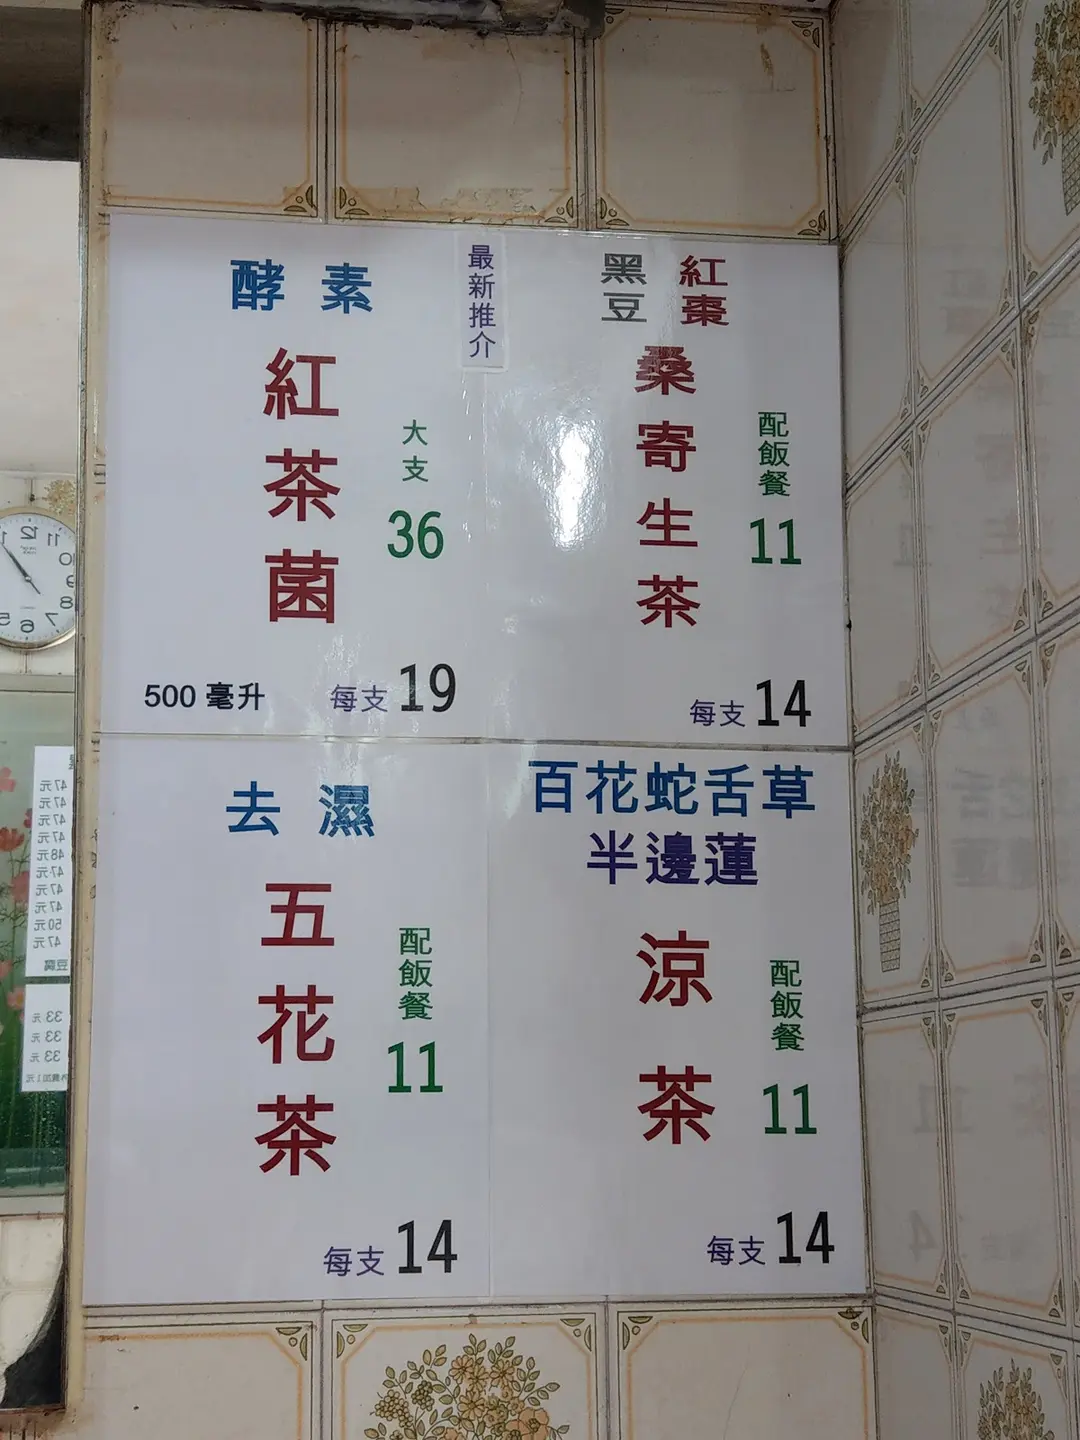 最新推介
酵素
紅茶菌
大支
36
500毫升
每支19
黑豆
紅棗
桑寄生茶
配飯餐
11
每支14
去濕
五花茶
配飯餐
11
每支14
百花蛇舌草
半邊蓮
涼茶
配飯餐
11
每支14
12
11
10
9
8
7
6
5
47元
47元
47元
47元
48元
47元
47元
47元
50元
47元
33元
33元
33元